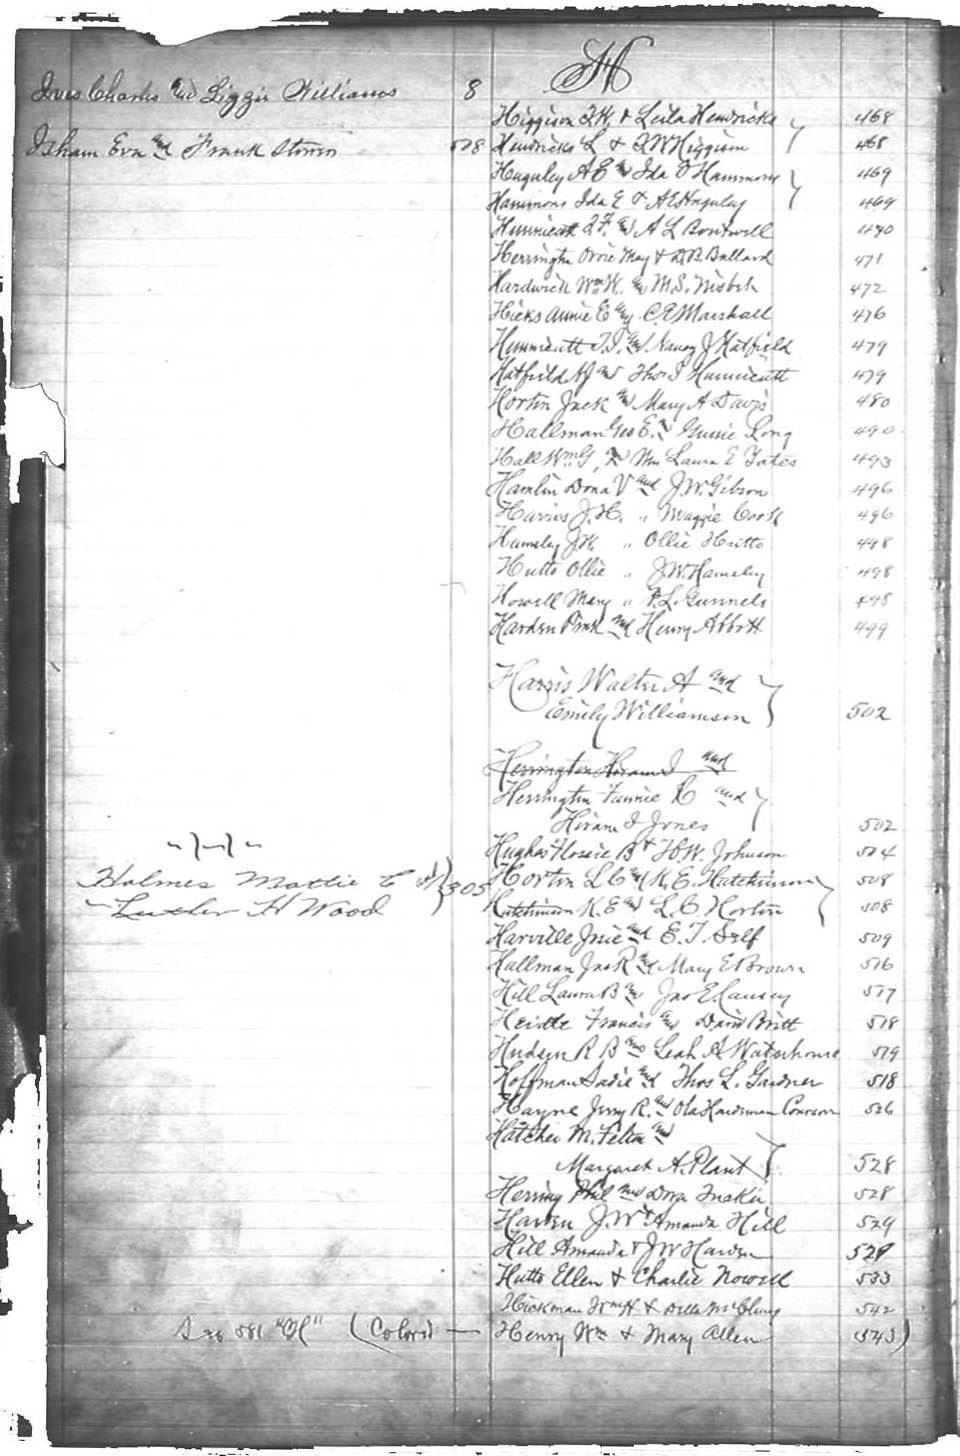 Ives Charles and Lizzie Williams 8
Isham Eva and Frank 508
"-}-{-"
Holmes Mattie C &
Luther H Wood } 305
H
Higgison T.W. & Leila Hendricks 468
Hendricks L & T W Higgison 468
Huguley A E and Ida Hammons 469
Hammons Ida E & A E Huguley 469
Hunnicutt and A L Boutwell 470
Herrington Ovvie May & Ballard 471
Hardwick Wm W. and M.S. Nisbet 472
Hicks Annie E and C E Marshall 476
Hunnicutt T.J. and Nancy J Hatfield 479
Hatfield N J and Thos J Hunnicutt 479
Hortin Jack and Mary A Davis 480
Hallman Geo E. and Gussie Long 490
Hall Wm G, & Mrs Laura E Yates 493
Hamlin Dona V and J.W. Gibson 496
Harris J.H. " Maggie Cook 496
Hamsley J.W. " Ollie Hutto 498
Hutto Ollie " J.W. Hamsley 498
Howell Mary " Gunnels 498
Harden Pink and Henry Abbott 499
Harris Walter A and
Emily Williamson } 502
Herrington Hiram I and
Herrington Fannie C and
Hiram I Jones } 502
Hughes Flossie B & H.W. Johnson 504
Hortin L C and K. E. Hatchinson 508
Hutchinson K. E and L. C. Hortin 508
Harville Josie and E. T. Self 509
Hallman Jno R and Mary E Brown 516
Hill Laura B and Jno E Causey 517
Heidte Francis and David Britt 518
Hudson R B and Leah A Waterhouse 519
Hoffman Sadie and Thos L. Gardner 518
Hayne Jerry R. and Ola Hardeman 526
Hatcher M. Felton and
Margaret A. Plant } 528
Herring Phil and Dora 528
Harden J.W & Amanda Hill 529
Hill Amanda & J W Harden 529
Hutto Ellen & Charlie Nowell 533
Hickman Wm H & Della McClung 542
581 "H" (Colored — Henry Wm & Mary Allen 543)